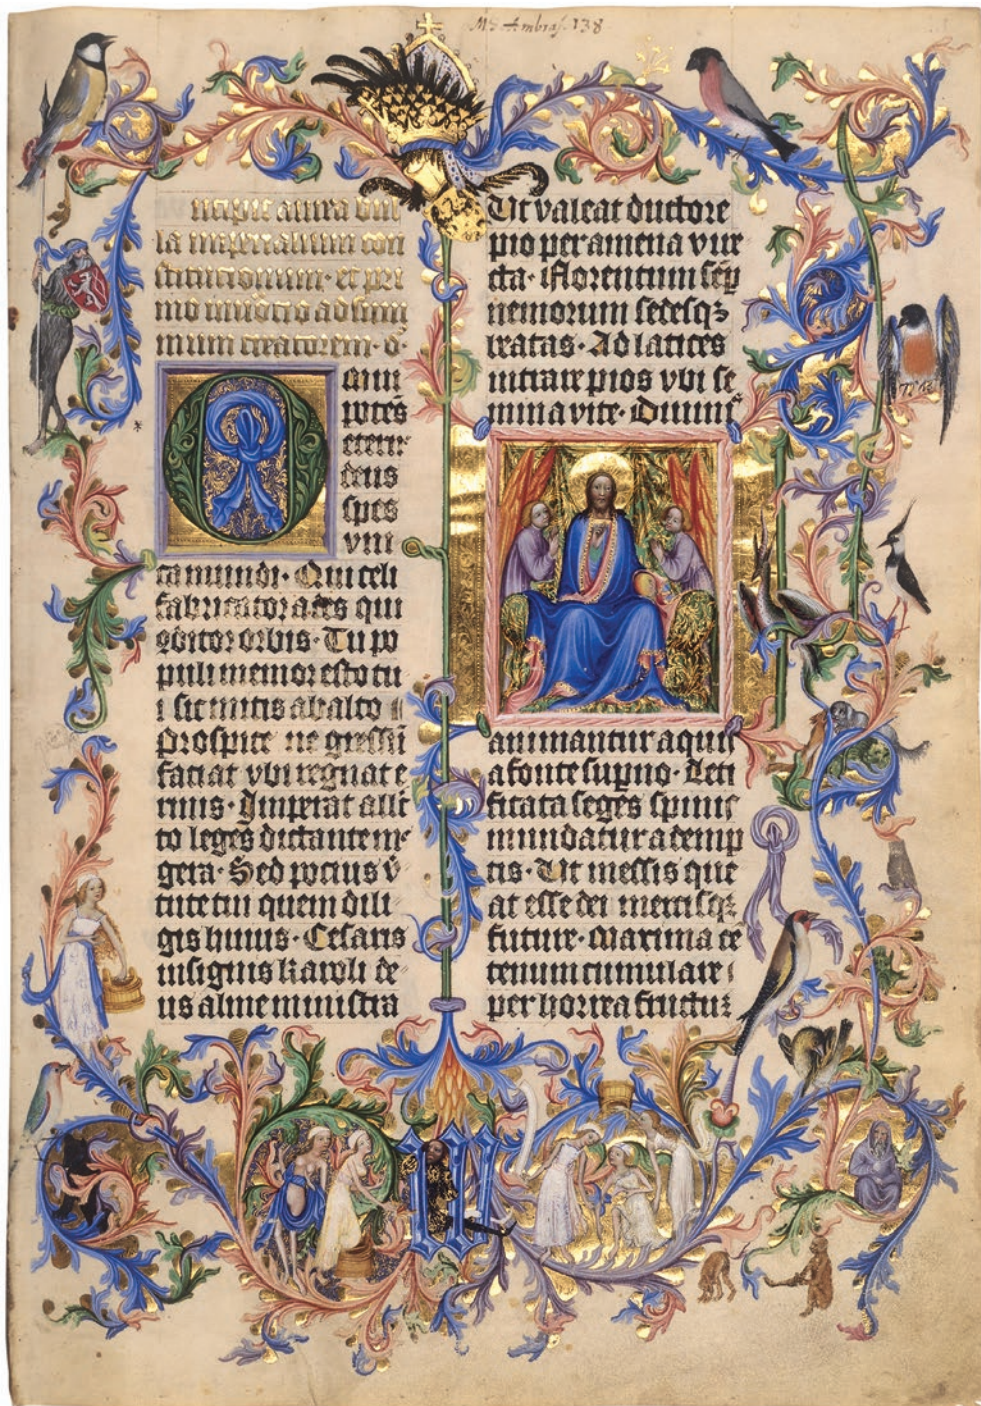 MS Ambras. 138
ncipit aurea bul
la imperialium con
stitucionum · et pri
mo inuocacio ad sum
mum creatorem · O·
mni
potēs
eterne
deus
spes
vni
ca mundi · Qui celi
fabricator ades qui
9ditor orbis · Tu po
puli memor esto tu
i sic mitis ab alto
Prospice ne gressū
faciat vbi regnat e
rinis · Imperat allec
to leges dictante me
gera · Sed pocius v̄
tute tui quem dili
gis huius · Cesaris
insignis karoli de
us alme ministra
Vt valeat ductore
pio per amena vire
cta · florentum sēp
nemorum sedesqꝫ
beatas · Ad latices
intrare pios vbi se
mina vite · Diuinis
animantur aquis
a fonte supno · leti
ficata seges spinis
mundatur ademp
tis · Vt messis que
at esse dei mercisqꝫ
future · Maxima cē
tenum cumulare
per horrea fructus
W